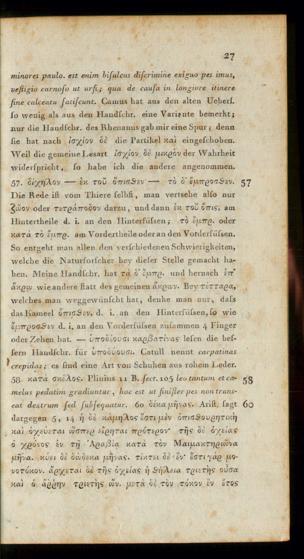 27
minores paulo. est enim bisulcus discrimine exiguo pes imus,
vestigio carnoso ut ursi; qua de causa in longiore itinere
sine calceatu fatiscunt. Camus hat aus den alten Uebers.
so wenig als aus den Handschr. eine Variante bemerkt;
nur die Handschr. des Rhenanus gab mir eine Spur; denn
sie hat nach ἰσχίον δὲ die Partikel καὶ eingeschoben.
Weil die gemeine Lesart ἰσχίον δὲ μικρόν der Wahrheit
widerspricht, so habe ich die andere angenommen.
57. δίχηλον — ἐκ τοῦ ὄπισθεν — τὸ δ᾽ ἔμπροσθεν. 57
Die Rede ist vom Thiere selbst, man verstehe also nur
ζῶον oder τετράποδον darzu, und dann ἐκ τοῦ ὄπισ. am
Hintertheile d. i. an den Hinterfüssen; τὸ ἔμπρ. oder
κατὰ τὸ ἔμπρ. am Vordertheile oder an den Vorderfüssen.
So entgeht man allen den verschiedenen Schwierigkeiten,
welche die Naturforscher bey dieser Stelle gemacht ha-
ben. Meine Handschr. hat τὰ δ᾽ ἔμπρ. und hernach ἐπ᾽
ἄκρῳ wie andere statt des gemeinen ἄκρων. Bey τέτταρα,
welches man weggewünscht hat, denke man nur, dass
das Kameel ὄπισθεν. d. i. an den Hinterfüssen, so wie
ἔμπροσθεν d. i. an den Vorderfüssen zusammen 4 Finger
oder Zehen hat. — ὑποδέουσι καρβατίνας lesen die bes-
sern Handschr. für ὑποδύουσι. Catull nennt carpatinas
crepidas; es sind eine Art von Schuhen aus rohem Leder.
58. κατὰ σκέλος. Plinius 11 B. sect. 105 leo tantum et ca- 58
melus pedatim gradiuntur, hoc est ut sinister pes non trans-
eat dextrum sed subsequatur. 60 δώδεκα μῆνας. Arist. sagt 60
dargegen 5, 14 ἡ δὲ κάμηλος ἐστὶ μὲν ὀπισθουρητικὴ
καὶ ὀχεύεται ὥσπερ εἴρηται πρότερον· τῆς δὲ ὀχείας
ὁ χρόνος ἐν τῇ Ἀραβίᾳ κατὰ τὸν Μαιμακτηριῶνα
μῆνα. κύει δὲ δώδεκα μῆνας. τίκτει δὲ ἕν· ἔστι γὰρ μο-
νοτόκον. ἄρχεται δὲ τῆς ὀχείας ἡ θήλεια τριετὴς οὖσα
καὶ ὁ ἄῤῥην τριετὴς ὤν. μετὰ δὲ τὸν τόκον ἓν ἔτος